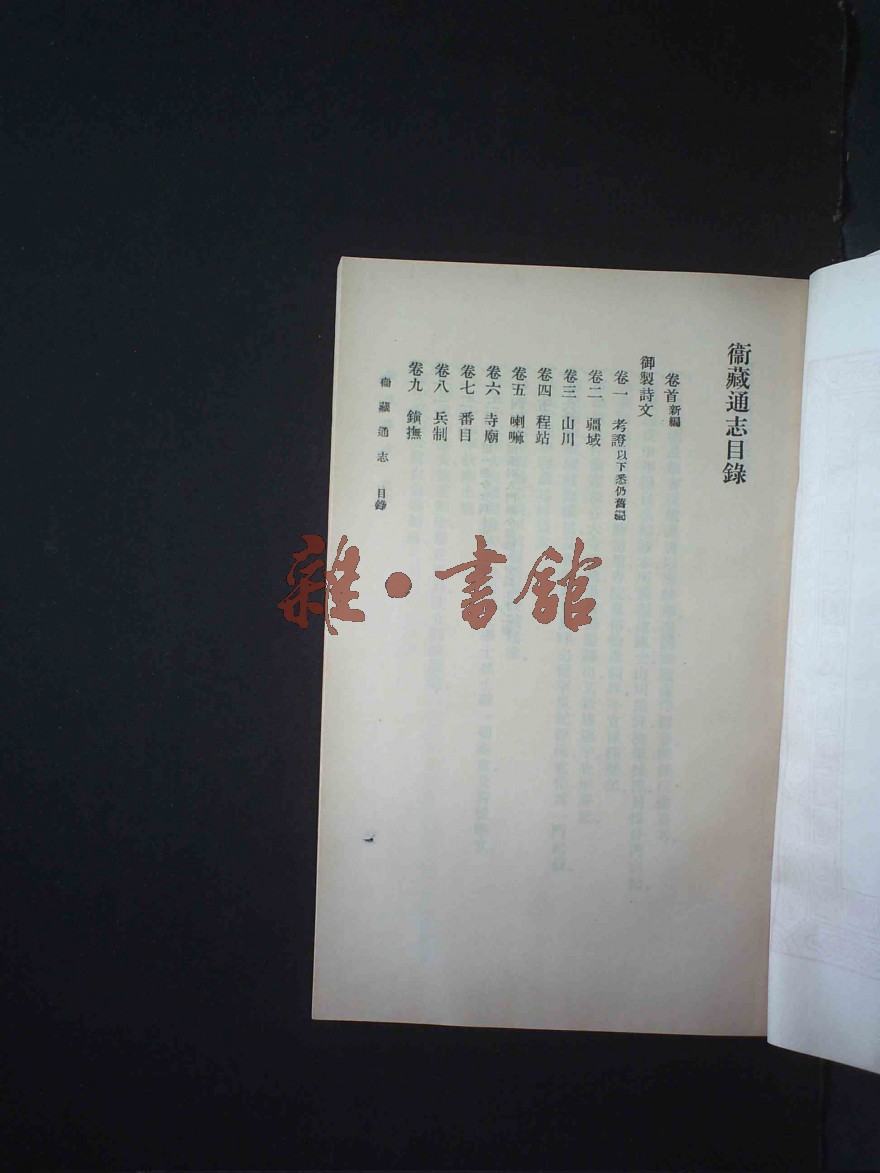 衞藏通志目錄
卷首新編
御製詩文
卷一 考證以下悉仍舊編
卷二 疆域
卷三 山川
卷四 程站
卷五 喇嘛
卷六 寺廟
卷七 番目
卷八 兵制
卷九 鎮撫
衞藏通志 目錄
一
雜·書館